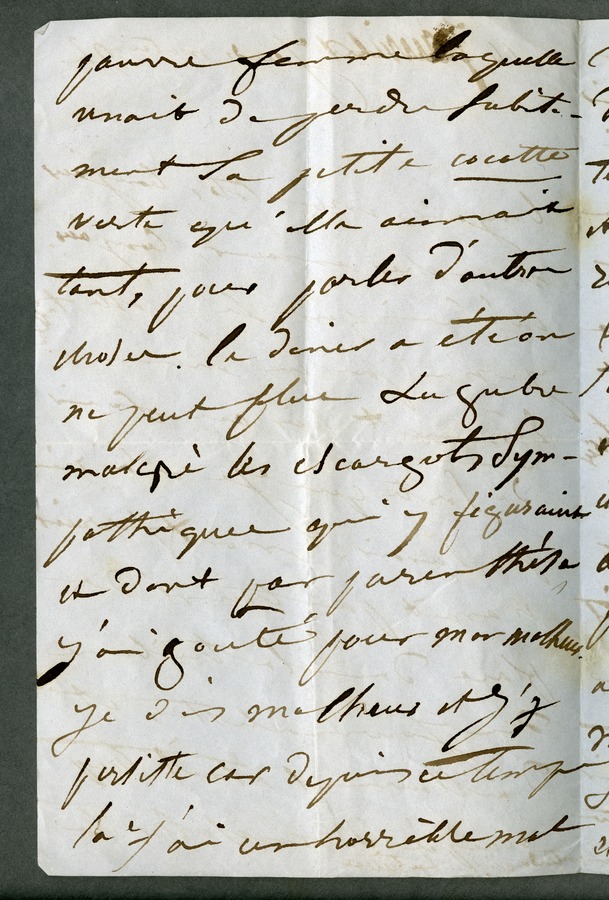 pauvre femme laquelle
venait de perdre subite-
ment sa petite cocotte
verte qu'elle aimait
tant, pour parler d'autre
chose. le diner a été on
ne peut plus lugubre
malgré les escargots sym-
pathiques qui y figuraient
et dont par parenthèse
j'ai gouté pour mon malheur.
je dis malheur et j'y
persiste car depuis ce temps
là j'ai un horrible mal